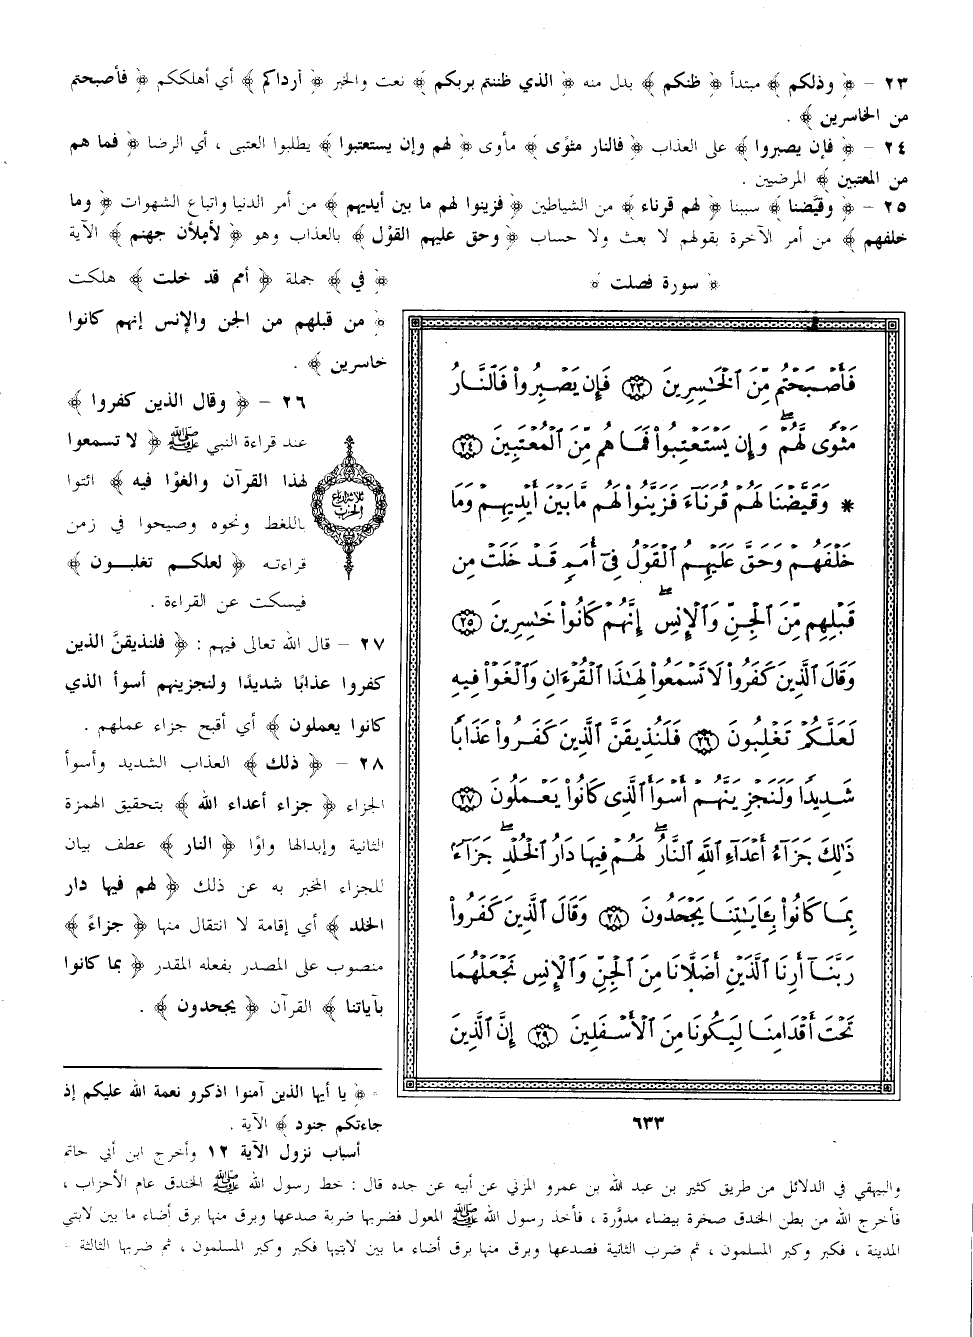 ٢٣ – ﴿ وذلكم ﴾ مبتدأ ﴿ ظنكم ﴾ بدل منه ﴿ الذي ظننتم بربكم ﴾ نعت والخبر ﴿ أرداكم ﴾ أي أهلككم ﴿ فأصبحتم
من الخاسرين ﴾ .
٢٤ – ﴿ فإن يصبروا ﴾ على العذاب ﴿ فالنار مثوًى ﴾ مأوى ﴿ لهم وإن يستعتبوا ﴾ يطلبوا العتبى ، أي الرضا ﴿ فما هم
من المعتبين ﴾ المرضيين .
٢٥ – ﴿ وقيَّضنا ﴾ سببنا ﴿ لهم قرناء ﴾ من الشياطين ﴿ فزينوا لهم ما بين أيديهم ﴾ من أمر الدنيا واتباع الشهوات ﴿ وما
خلفهم ﴾ من أمر الآخرة بقولهم لا بعث ولا حساب ﴿ وحق عليهم القوْل ﴾ بالعذاب وهو ﴿ لأملأن جهنم ﴾ الآية
﴿ سورة فصلت ﴾
﴿ في ﴾ جملة ﴿ أمم قد خلت ﴾ هلكت
﴿ من قبلهم من الجن والإنس إنهم كانوا
خاسرين ﴾ .
٢٦ – ﴿ وقال الذين كفروا ﴾
عند قراءة النبي ﷺ ﴿ لا تسمعوا
لهذا القرآن والغوْا فيه ﴾ ائتوا
باللغط ونحوه وصيحوا في زمن
قراءته ﴿ لعلكم تغلبون ﴾
فيسكت عن القراءة .
٢٧ – قال الله تعالى فيهم : ﴿ فلنذيقنَّ الذين
كفروا عذابًا شديدًا ولنجزينهم أسوأ الذي
كانوا يعملون ﴾ أي أقبح جزاء عملهم .
٢٨ – ﴿ ذلك ﴾ العذاب الشديد وأسوأ
الجزاء ﴿ جزاء أعداء الله ﴾ بتحقيق الهمزة
الثانية وإبدالها واوًا ﴿ النار ﴾ عطف بيان
للجزاء المخبر به عن ذلك ﴿ لهم فيها دار
الخلد ﴾ أي إقامة لا انتقال منها ﴿ جزاءً ﴾
منصوب على المصدر بفعله المقدر ﴿ بما كانوا
بآياتنا ﴾ القرآن ﴿ يجحدون ﴾ .
ثلاثة أرباع
الحزب
فَأَصْبَحْتُم مِّنَ ٱلْخَٰسِرِينَ ﴿٢٣﴾ فَإِن يَصْبِرُوا۟ فَٱلنَّارُ
مَثْوًى لَّهُمْ ۖ وَإِن يَسْتَعْتِبُوا۟ فَمَا هُم مِّنَ ٱلْمُعْتَبِينَ ﴿٢٤﴾
* وَقَيَّضْنَا لَهُمْ قُرَنَآءَ فَزَيَّنُوا۟ لَهُم مَّا بَيْنَ أَيْدِيهِمْ وَمَا
خَلْفَهُمْ وَحَقَّ عَلَيْهِمُ ٱلْقَوْلُ فِىٓ أُمَمٍ قَدْ خَلَتْ مِن
قَبْلِهِم مِّنَ ٱلْجِنِّ وَٱلْإِنسِ ۖ إِنَّهُمْ كَانُوا۟ خَٰسِرِينَ ﴿٢٥﴾
وَقَالَ ٱلَّذِينَ كَفَرُوا۟ لَا تَسْمَعُوا۟ لِهَٰذَا ٱلْقُرْءَانِ وَٱلْغَوْا۟ فِيهِ
لَعَلَّكُمْ تَغْلِبُونَ ﴿٢٦﴾ فَلَنُذِيقَنَّ ٱلَّذِينَ كَفَرُوا۟ عَذَابًا
شَدِيدًا وَلَنَجْزِيَنَّهُمْ أَسْوَأَ ٱلَّذِى كَانُوا۟ يَعْمَلُونَ ﴿٢٧﴾
ذَٰلِكَ جَزَآءُ أَعْدَآءِ ٱللَّهِ ٱلنَّارُ ۖ لَهُمْ فِيهَا دَارُ ٱلْخُلْدِ ۖ جَزَآءًۢ
بِمَا كَانُوا۟ بِـَٔايَٰتِنَا يَجْحَدُونَ ﴿٢٨﴾ وَقَالَ ٱلَّذِينَ كَفَرُوا۟
رَبَّنَآ أَرِنَا ٱلَّذَيْنِ أَضَلَّانَا مِنَ ٱلْجِنِّ وَٱلْإِنسِ نَجْعَلْهُمَا
تَحْتَ أَقْدَامِنَا لِيَكُونَا مِنَ ٱلْأَسْفَلِينَ ﴿٢٩﴾ إِنَّ ٱلَّذِينَ
٦٣٣
= ﴿ يا أيها الذين آمنوا اذكرو نعمة الله عليكم إذ
جاءتكم جنود ﴾ الآية .
أسباب نزول الآية ١٢ وأخرج ابن أبي حاتم
والبيهقي في الدلائل من طريق كثير بن عبد الله بن عمرو المزني عن أبيه عن جده قال : خط رسول الله ﷺ الخندق عام الأحزاب ،
فأخرج الله من بطن الخندق صخرة بيضاء مدوَّرة ، فأخذ رسول الله ﷺ المعول فضربها ضربة صدعها وبرق منها برق أضاء ما بين لابتي
المدينة ، فكبر وكبر المسلمون ، ثم ضرب الثانية فصدعها وبرق منها برق أضاء ما بين لابتيها فكبر وكبر المسلمون ، ثم ضربها الثالثة =